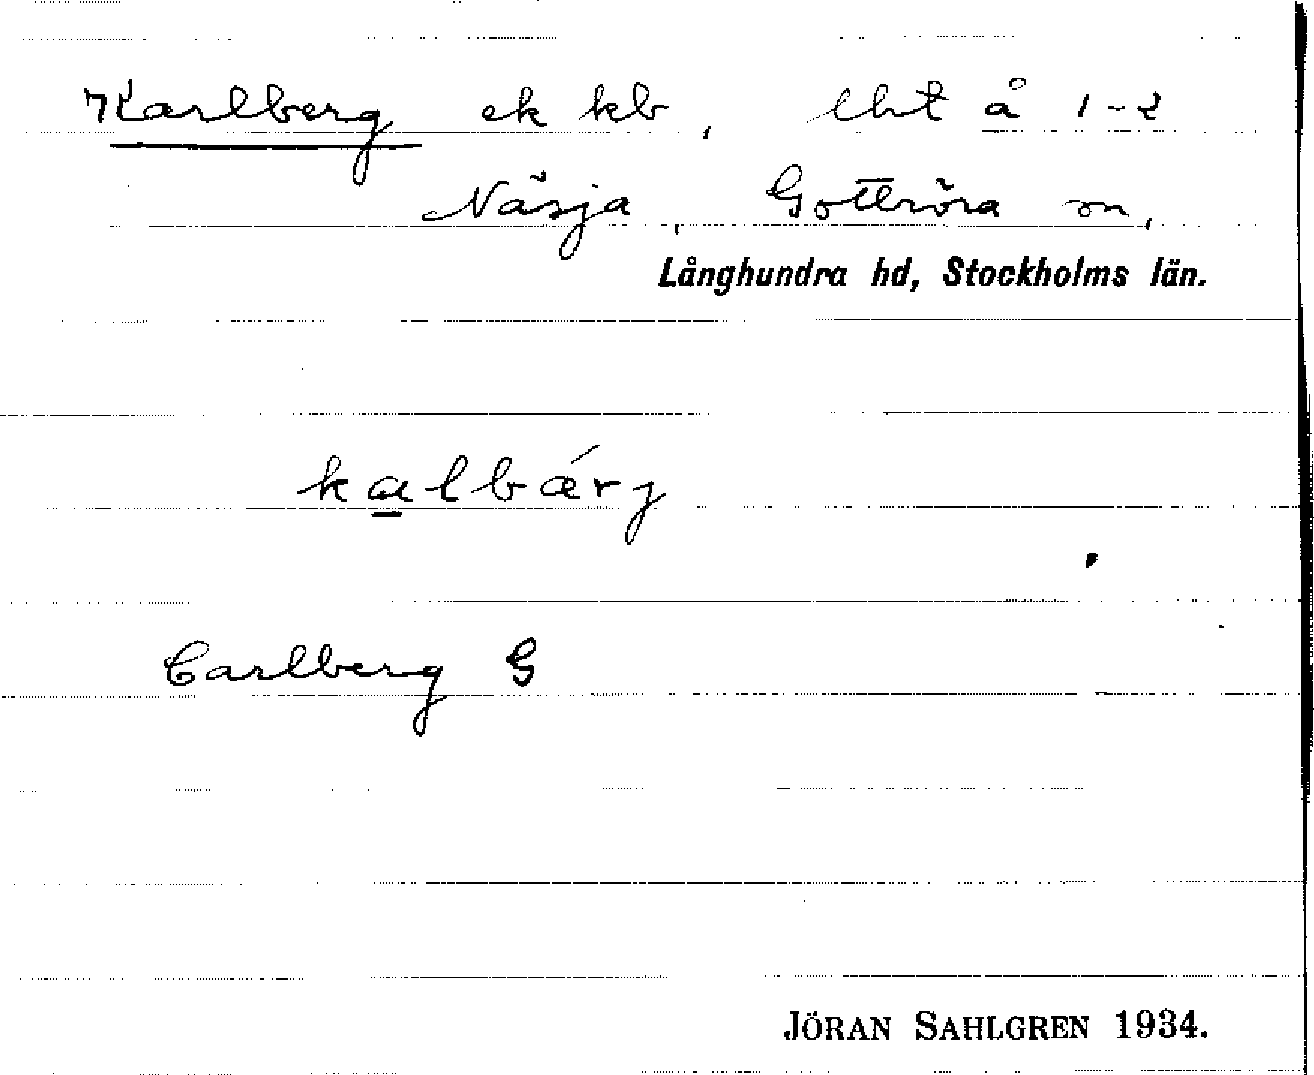 Karlberg ek kb, lht å 1-2
Näsja, Gottröra sn,
Långhundra hd, Stockholms län.
kalbǽrj
Carlberg G
JÖRAN SAHLGREN 1934.